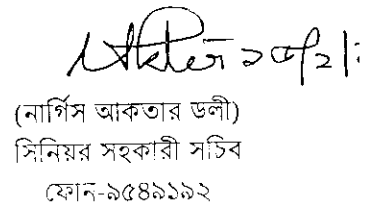 (নার্গিস আকতার ডলী)
সিনিয়র সহকারী সচিব
ফোন-৯৫৪৯১৯২